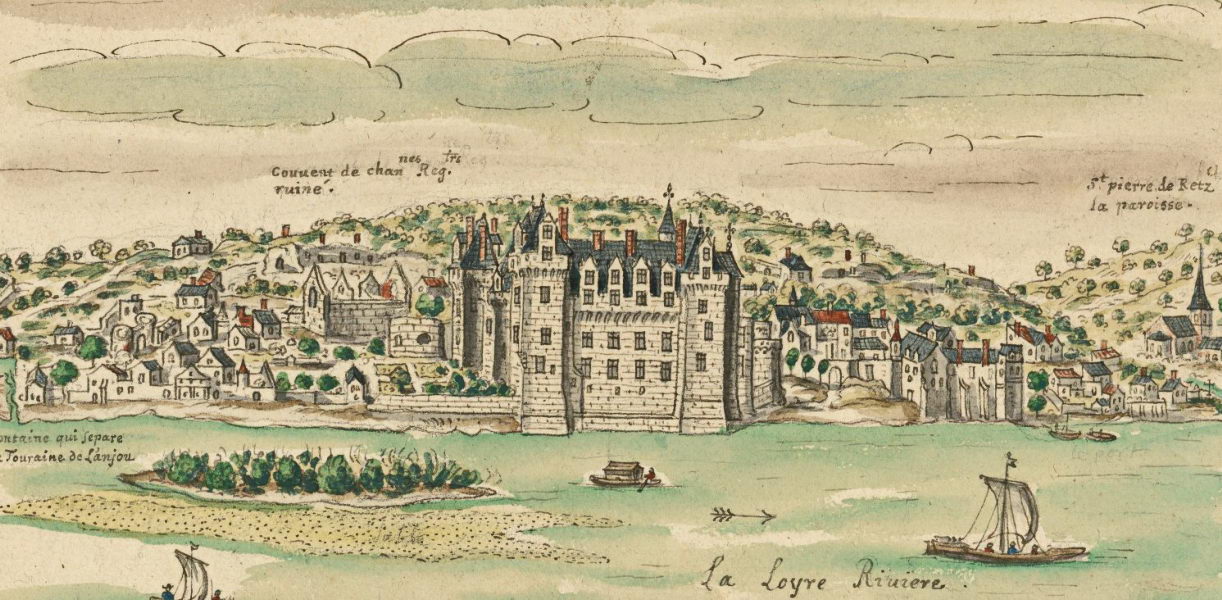 Couuent de chan nes Reg. trs
ruiné.
St pierre de Retz
la paroisse.
ontaine qui separe
Touraine de Lanjou
le port
sable
La Loyre Riuiere.